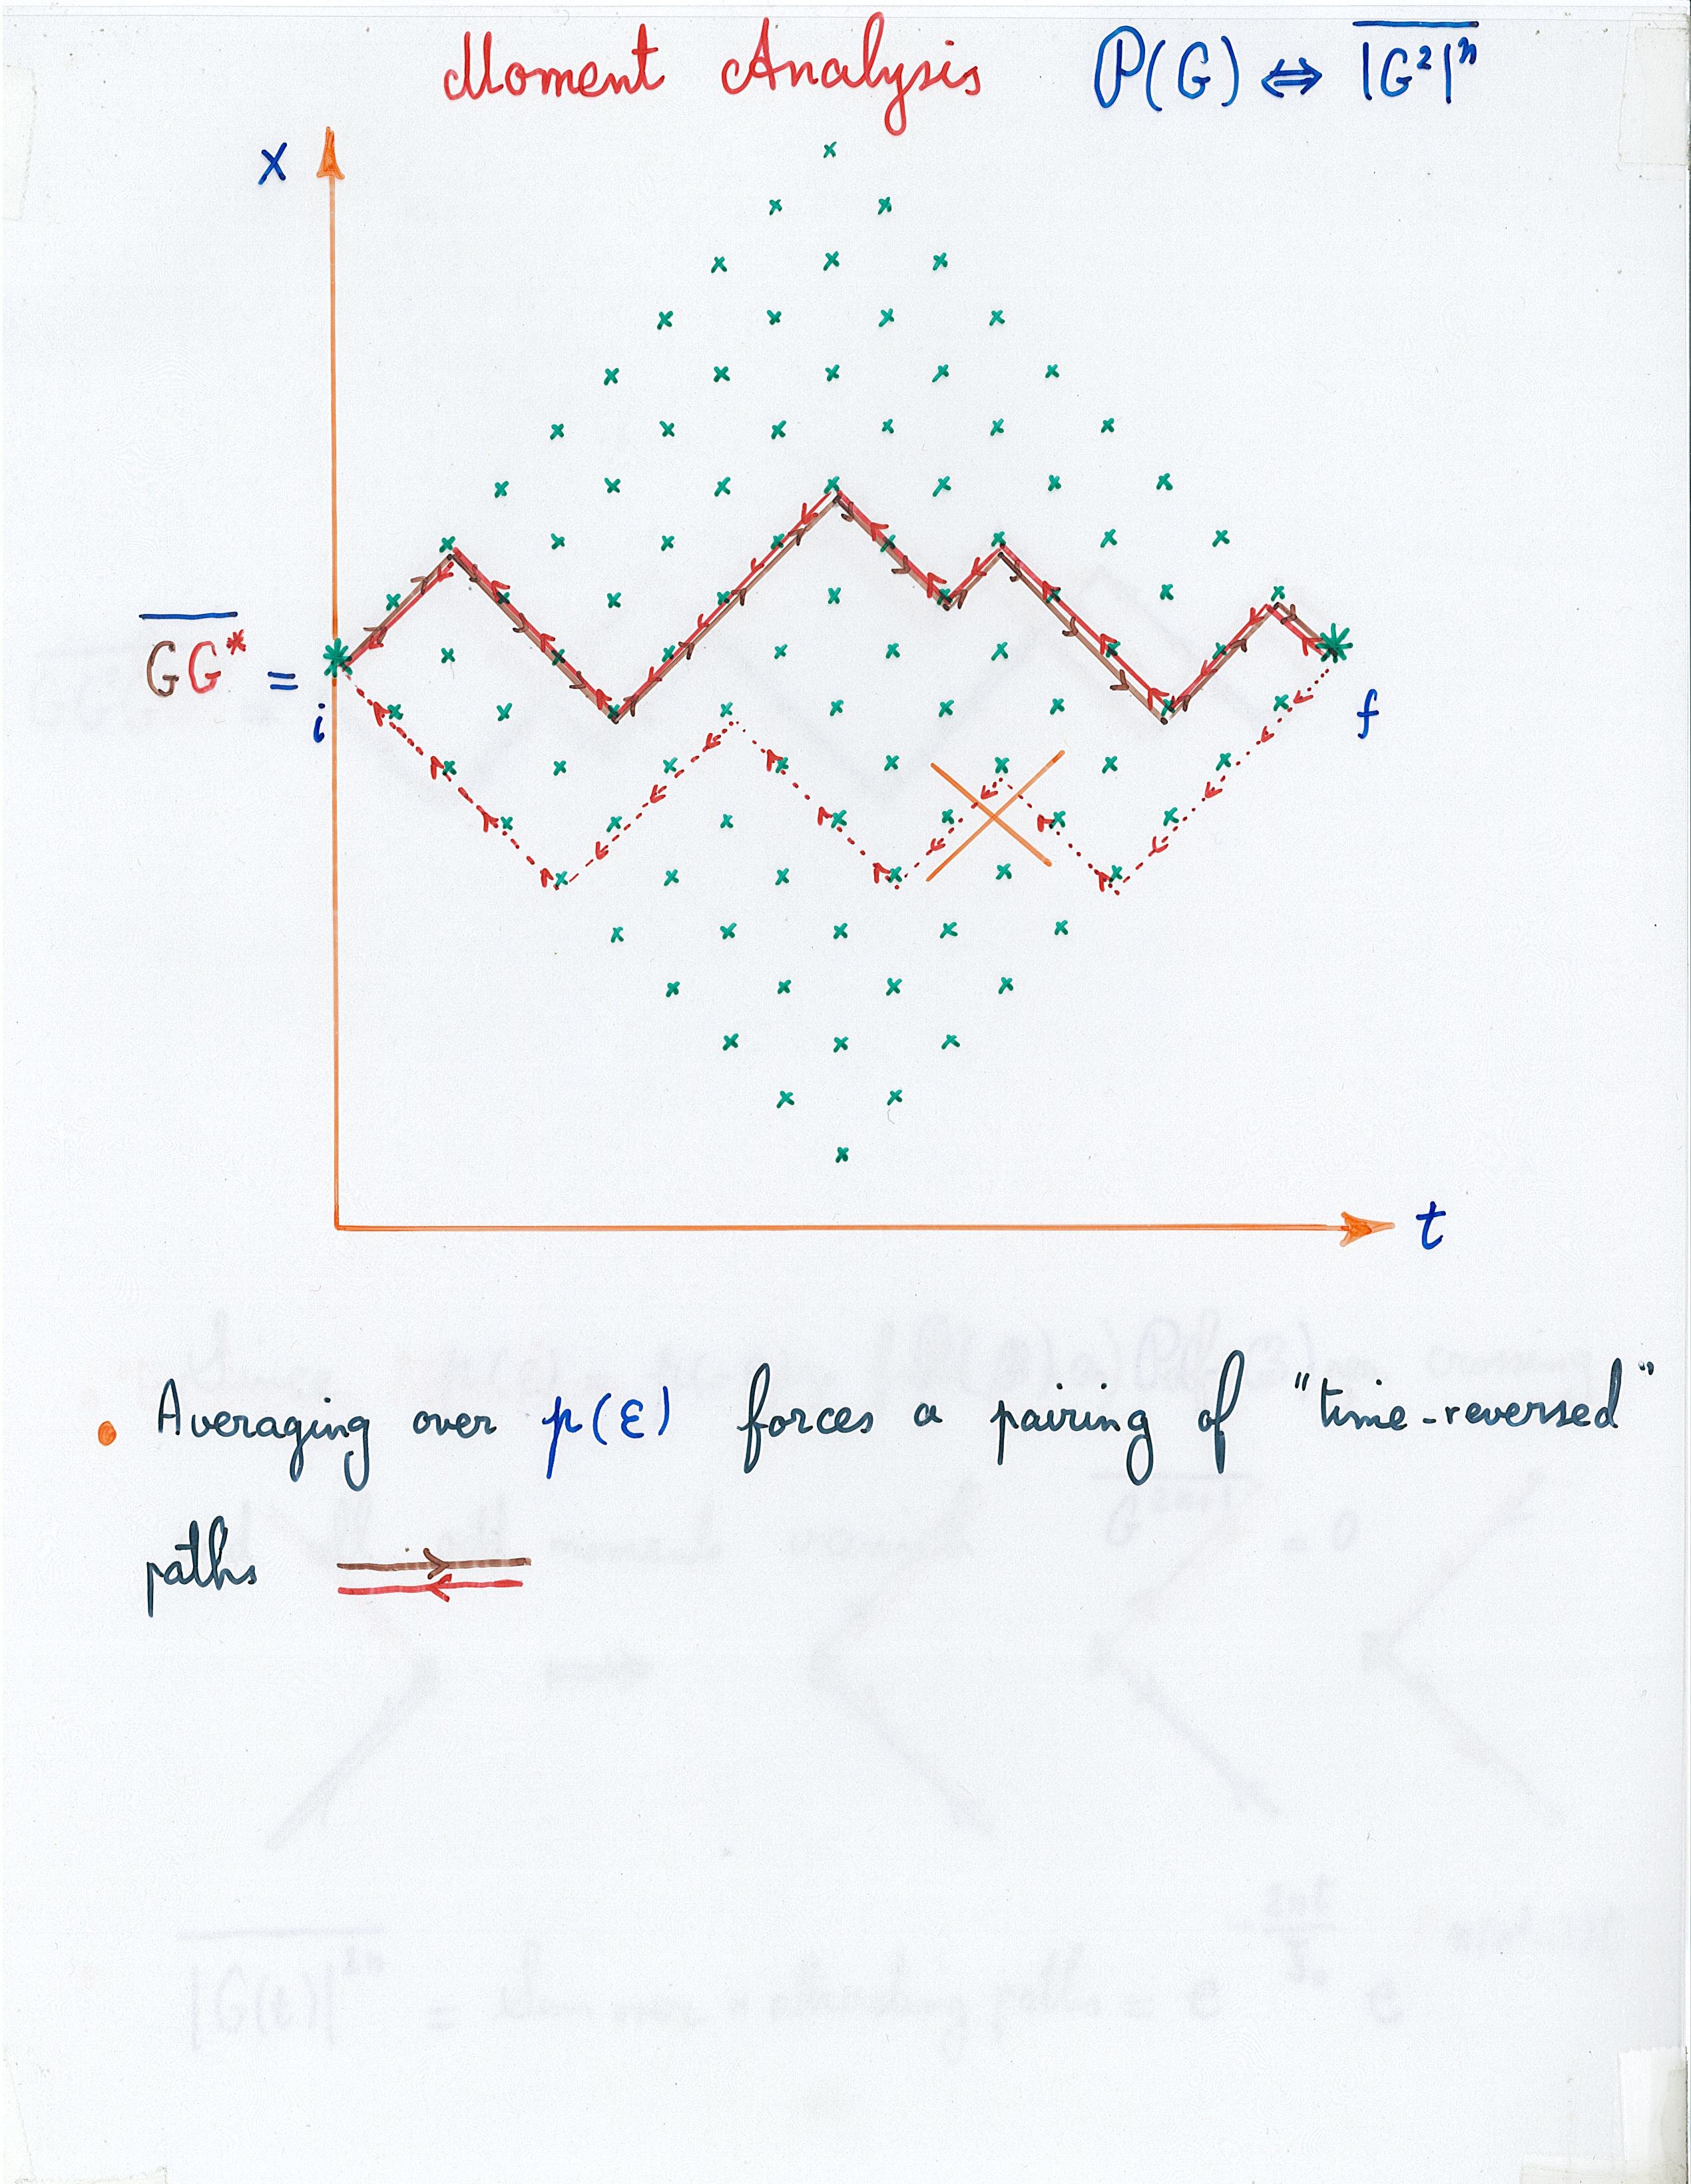 Moment Analysis P(G) ⇔ \overline{|G²|ⁿ}
x
\overline{GG*} =
i
f
t
• Averaging over p(ε) forces a pairing of "time-reversed"
paths